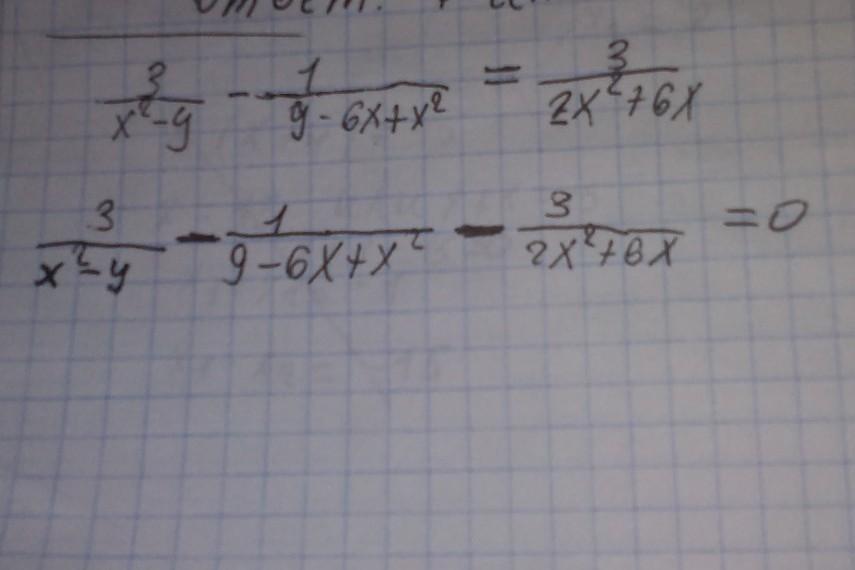 3/(x²-y) - 1/(9-6x+x²) = 3/(2x²+6x)
3/(x²-y) - 1/(9-6x+x²) - 3/(2x²+6x) = 0